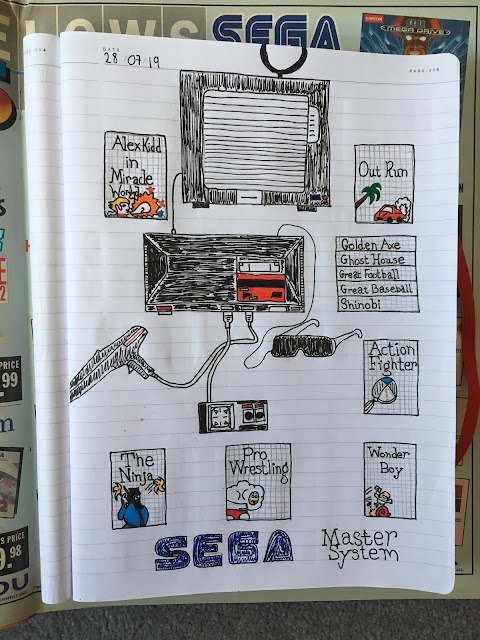 LOWS SEGA
CAPCOM
MEGA DRIVE
DATE
28 07 19
PAGE
Alex Kidd
in
Miracle
World
Out Run
Golden Axe
Ghost House
Great Football
Great Baseball
Shinobi
Action
Fighter
The
Ninja
Pro
Wrestling
Wonder
Boy
SEGA
Master
System
PRICE
.99
PRICE
9.98
OU